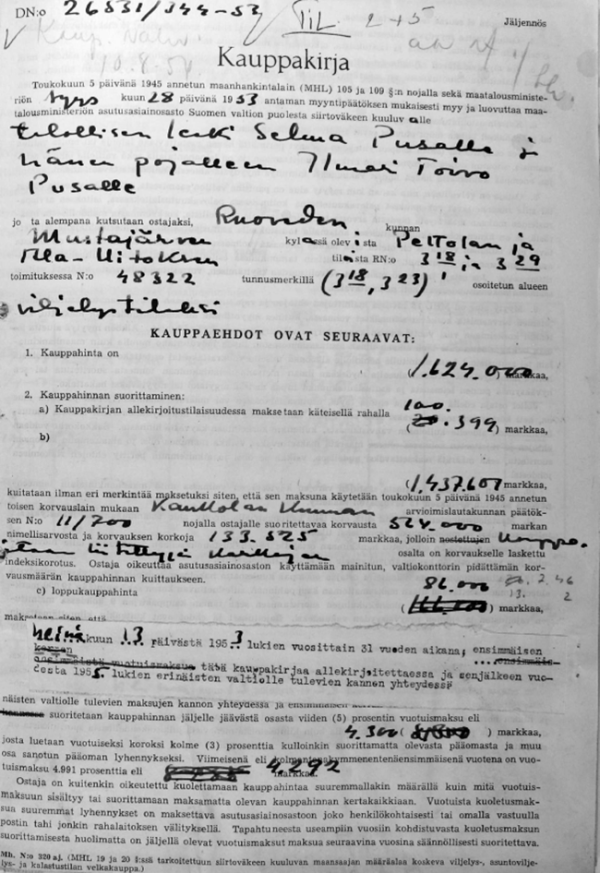 DN:o 26531/344-53 TiL 2+5 Jäljennös
Kauppakirja
Toukokuun 5 päivänä 1945 annetun maanhankintalain (MHL) 105 ja 109 §:n nojalla sekä maatalousministe-
riön syys kuun 28 päivänä 1953 antaman myyntipäätöksen mukaisesti myy ja luovuttaa maa-
talousministeriön asutusasiainosasto Suomen valtion puolesta siirtoväkeen kuuluv alle
tilallisen leski Selma Pusalle ja
hänen pojalleen Ilmari Toivo
Pusalle
jo ta alempana kutsutaan ostajaksi, Ruoveden kunnan
Mustajärven kylässä olev ista Peltolan ja
Ala-Uitoksen tiloista RN:o 3 18 ja 3 29
toimituksessa N:o 48322 tunnusmerkillä (3 18, 3 23) osoitetun alueen
viljelystilaksi
KAUPPAEHDOT OVAT SEURAAVAT:
1. Kauppahinta on
(1.624.000) markkaa,
2. Kauppahinnan suorittaminen:
a) Kauppakirjan allekirjoitustilaisuudessa maksetaan käteisellä rahalla 100.
(20.399) markkaa,
b)
(1.437.601) markkaa,
kuitataan ilman eri merkintää maksetuksi siten, että sen maksuna käytetään toukokuun 5 päivänä 1945 annetun
toisen korvauslain mukaan Kaukolan kunnan arvioimislautakunnan päätök-
sen N:o 11/200 nojalla ostajalle suoritettavaa korvausta 524.000 markan
nimellisarvosta ja korvauksen korkoja 133.525 markkaa, jolloin nostettujen
liitettyjä korkojen osalta on korvaukselle laskettu
indeksikorotus. Ostaja oikeuttaa asutusasiainosaston käyttämään mainitun, valtiokonttorin pidättämän kor-
vausmäärän kauppahinnan kuittaukseen.
c) loppukauppahinta 86.000
markkaa,
maksetaan siten että
heinäkuun 13 päivästä 1953 lukien vuosittain 31 vuoden aikana, ensimmäisen
kerran
ensimmäistä vuotuismaksua tätä kauppakirjaa allekirjoitettaessa ja senjälkeen vuo-
desta 1955 lukien erinäisten valtiolle tulevien kannon yhteydessä
näisten valtiolle tulevien maksujen kannon yhteydessä ja ensimmäisen
suoritetaan kauppahinnan jäljelle jäävästä osasta viiden (5) prosentin vuotuismaksu eli
4.300 markkaa,
josta luetaan vuotuiseksi koroksi kolme (3) prosenttia kulloinkin suorittamatta olevasta pääomasta ja muu
osa sanotun pääoman lyhennykseksi. Viimeisenä eli kolmantenakymmenentenäensimmäisenä vuotena on vuo-
tuismaksu 4.991 prosenttia eli 4292 markkaa.
Ostaja on kuitenkin oikeutettu kuolettamaan kauppahintaa suuremmallakin määrällä kuin mitä vuotuis-
maksuun sisältyy tai suorittamaan maksamatta olevan kauppahinnan kertakaikkiaan. Vuotuista kuoletusmak-
sua suuremmat lyhennykset on maksettava asutusasiainosastoon joko henkilökohtaisesti tai omalla vastuulla
postin tahi jonkin rahalaitoksen välityksellä. Tapahtuneesta useampiin vuosiin kohdistuvasta kuoletusmaksun
suorittamisesta huolimatta on jäljellä olevat vuotuismaksut maksua seuraavina vuosina säännöllisesti suoritettava.
Mh. N:o 320 aj. (MHL 19 ja 20 §:ssä tarkoitettuun siirtoväkeen kuuluvan maansaajan määräalaa koskeva viljelys-, asuntovilje-
lys- ja kalastustilan velkakauppa.)